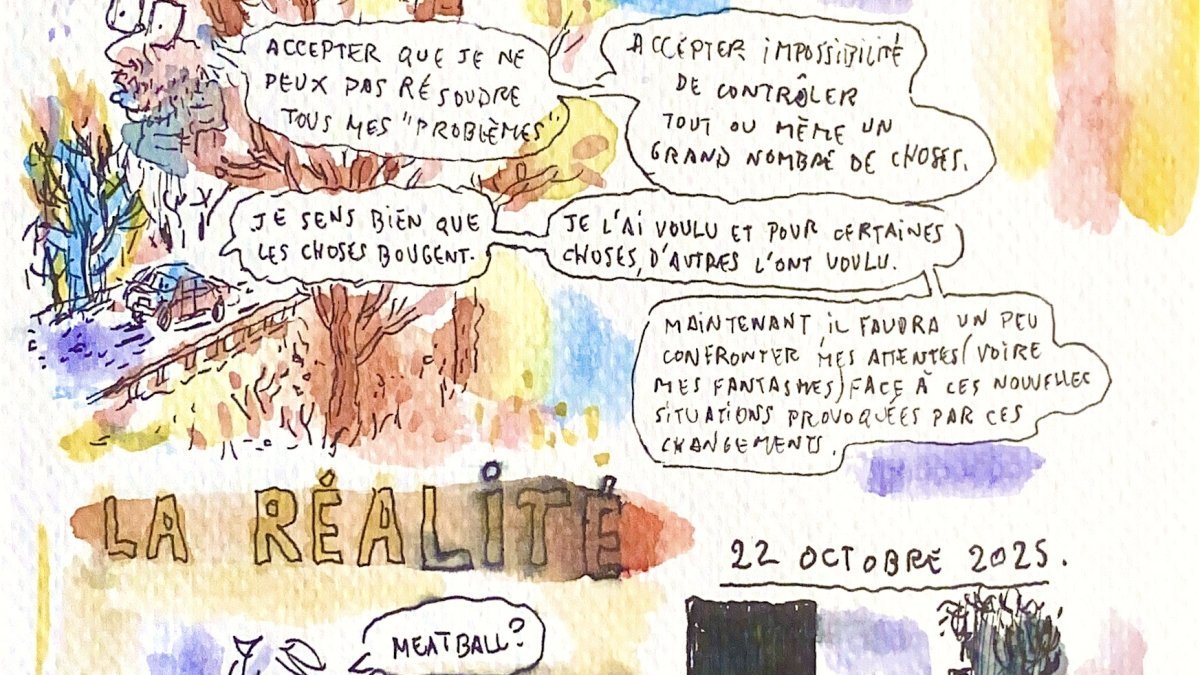 ACCEPTER QUE JE NE
PEUX PAS RÉSOUDRE
TOUS MES "PROBLÈMES"
ACCEPTER IMPOSSIBILITÉ
DE CONTRÔLER
TOUT OU MÊME UN
GRAND NOMBRE DE CHOSES.
JE SENS BIEN QUE
LES CHOSES BOUGENT.
JE L'AI VOULU ET POUR CERTAINES
CHOSES, D'AUTRES L'ONT VOULU.
MAINTENANT IL FAUDRA UN PEU
CONFRONTER MES ATTENTES (VOIRE
MES FANTASMES) FACE À CES NOUVELLES
SITUATIONS PROVOQUÉES PAR CES
CHANGEMENTS.
LA RÉALITÉ
22 OCTOBRE 2025.
MEATBALL?